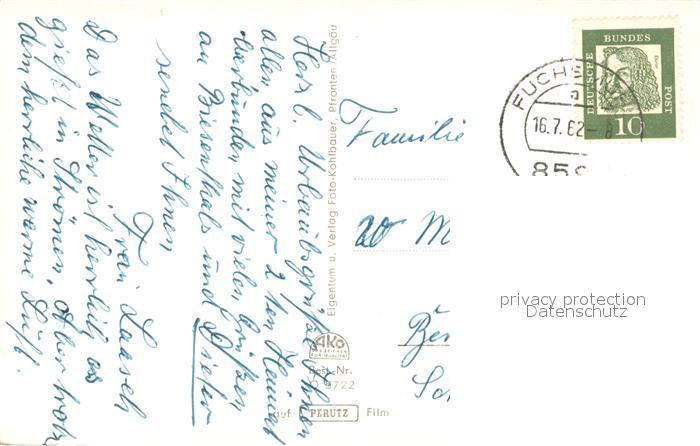 Herzl. Urlaubsgrüße Ihnen
allen aus meiner 2ten Heimat
verbunden mit vielen Grüßen
an Biesenthals und Dieter
sendet Ihnen
Frau Laasch
Das Wetter ist herrlich, es
gießt in Strömen, aber trotz
dem herrliche warme Luft.
Eigentum u. Verlag Foto-Kohlbauer, Pfronten/Allgäu
Familie
20 M
AKO
Best.-Nr.
9722
auf PERUTZ Film
DEUTSCHE
BUNDES
POST
10
FUCH
a
16.7.62-8
859
privacy protection
Datenschutz